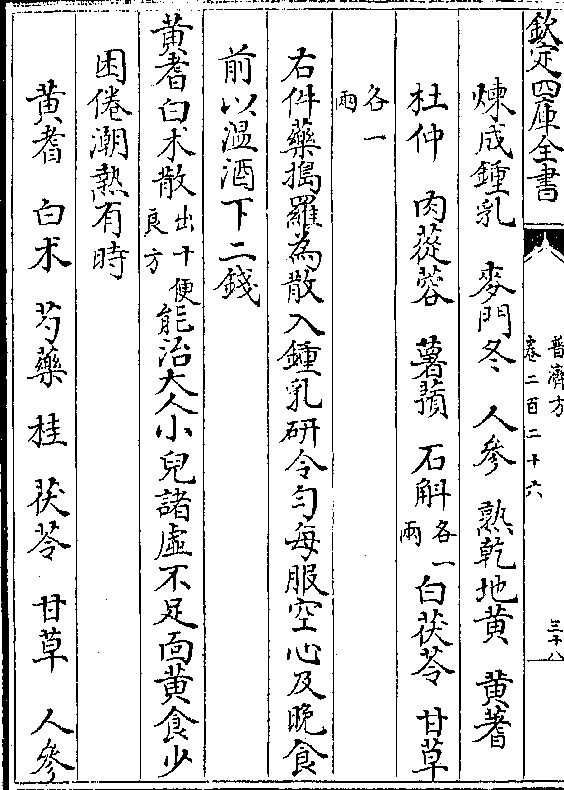 欽定四庫全書
普濟方
卷二百二十六
三十八
煉成鍾乳 麥門冬 人參 熟乾地黄 黄耆
杜仲 肉蓯蓉 薯蕷 石斛各一兩 白茯苓 甘草
各一兩
右件藥搗羅為散入鍾乳研令匀每服空心及晚食
前以温酒下二錢
黄耆白术散出十便良方能治大人小兒諸虚不足面黄食少
困倦潮熱有時
黄耆 白术 芍藥 桂 茯苓 甘草 人參